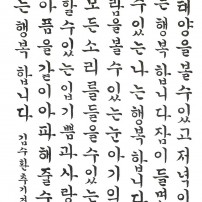 태양을볼수있고저녁이
는행복합니다잠이들면
수있는나는행복합니다
람을볼수있는눈아기의
모든소리를들을수있는
할수있는입기쁨과사랑
아픔을같이아파해줄수
는행복합니다.
김수환추기